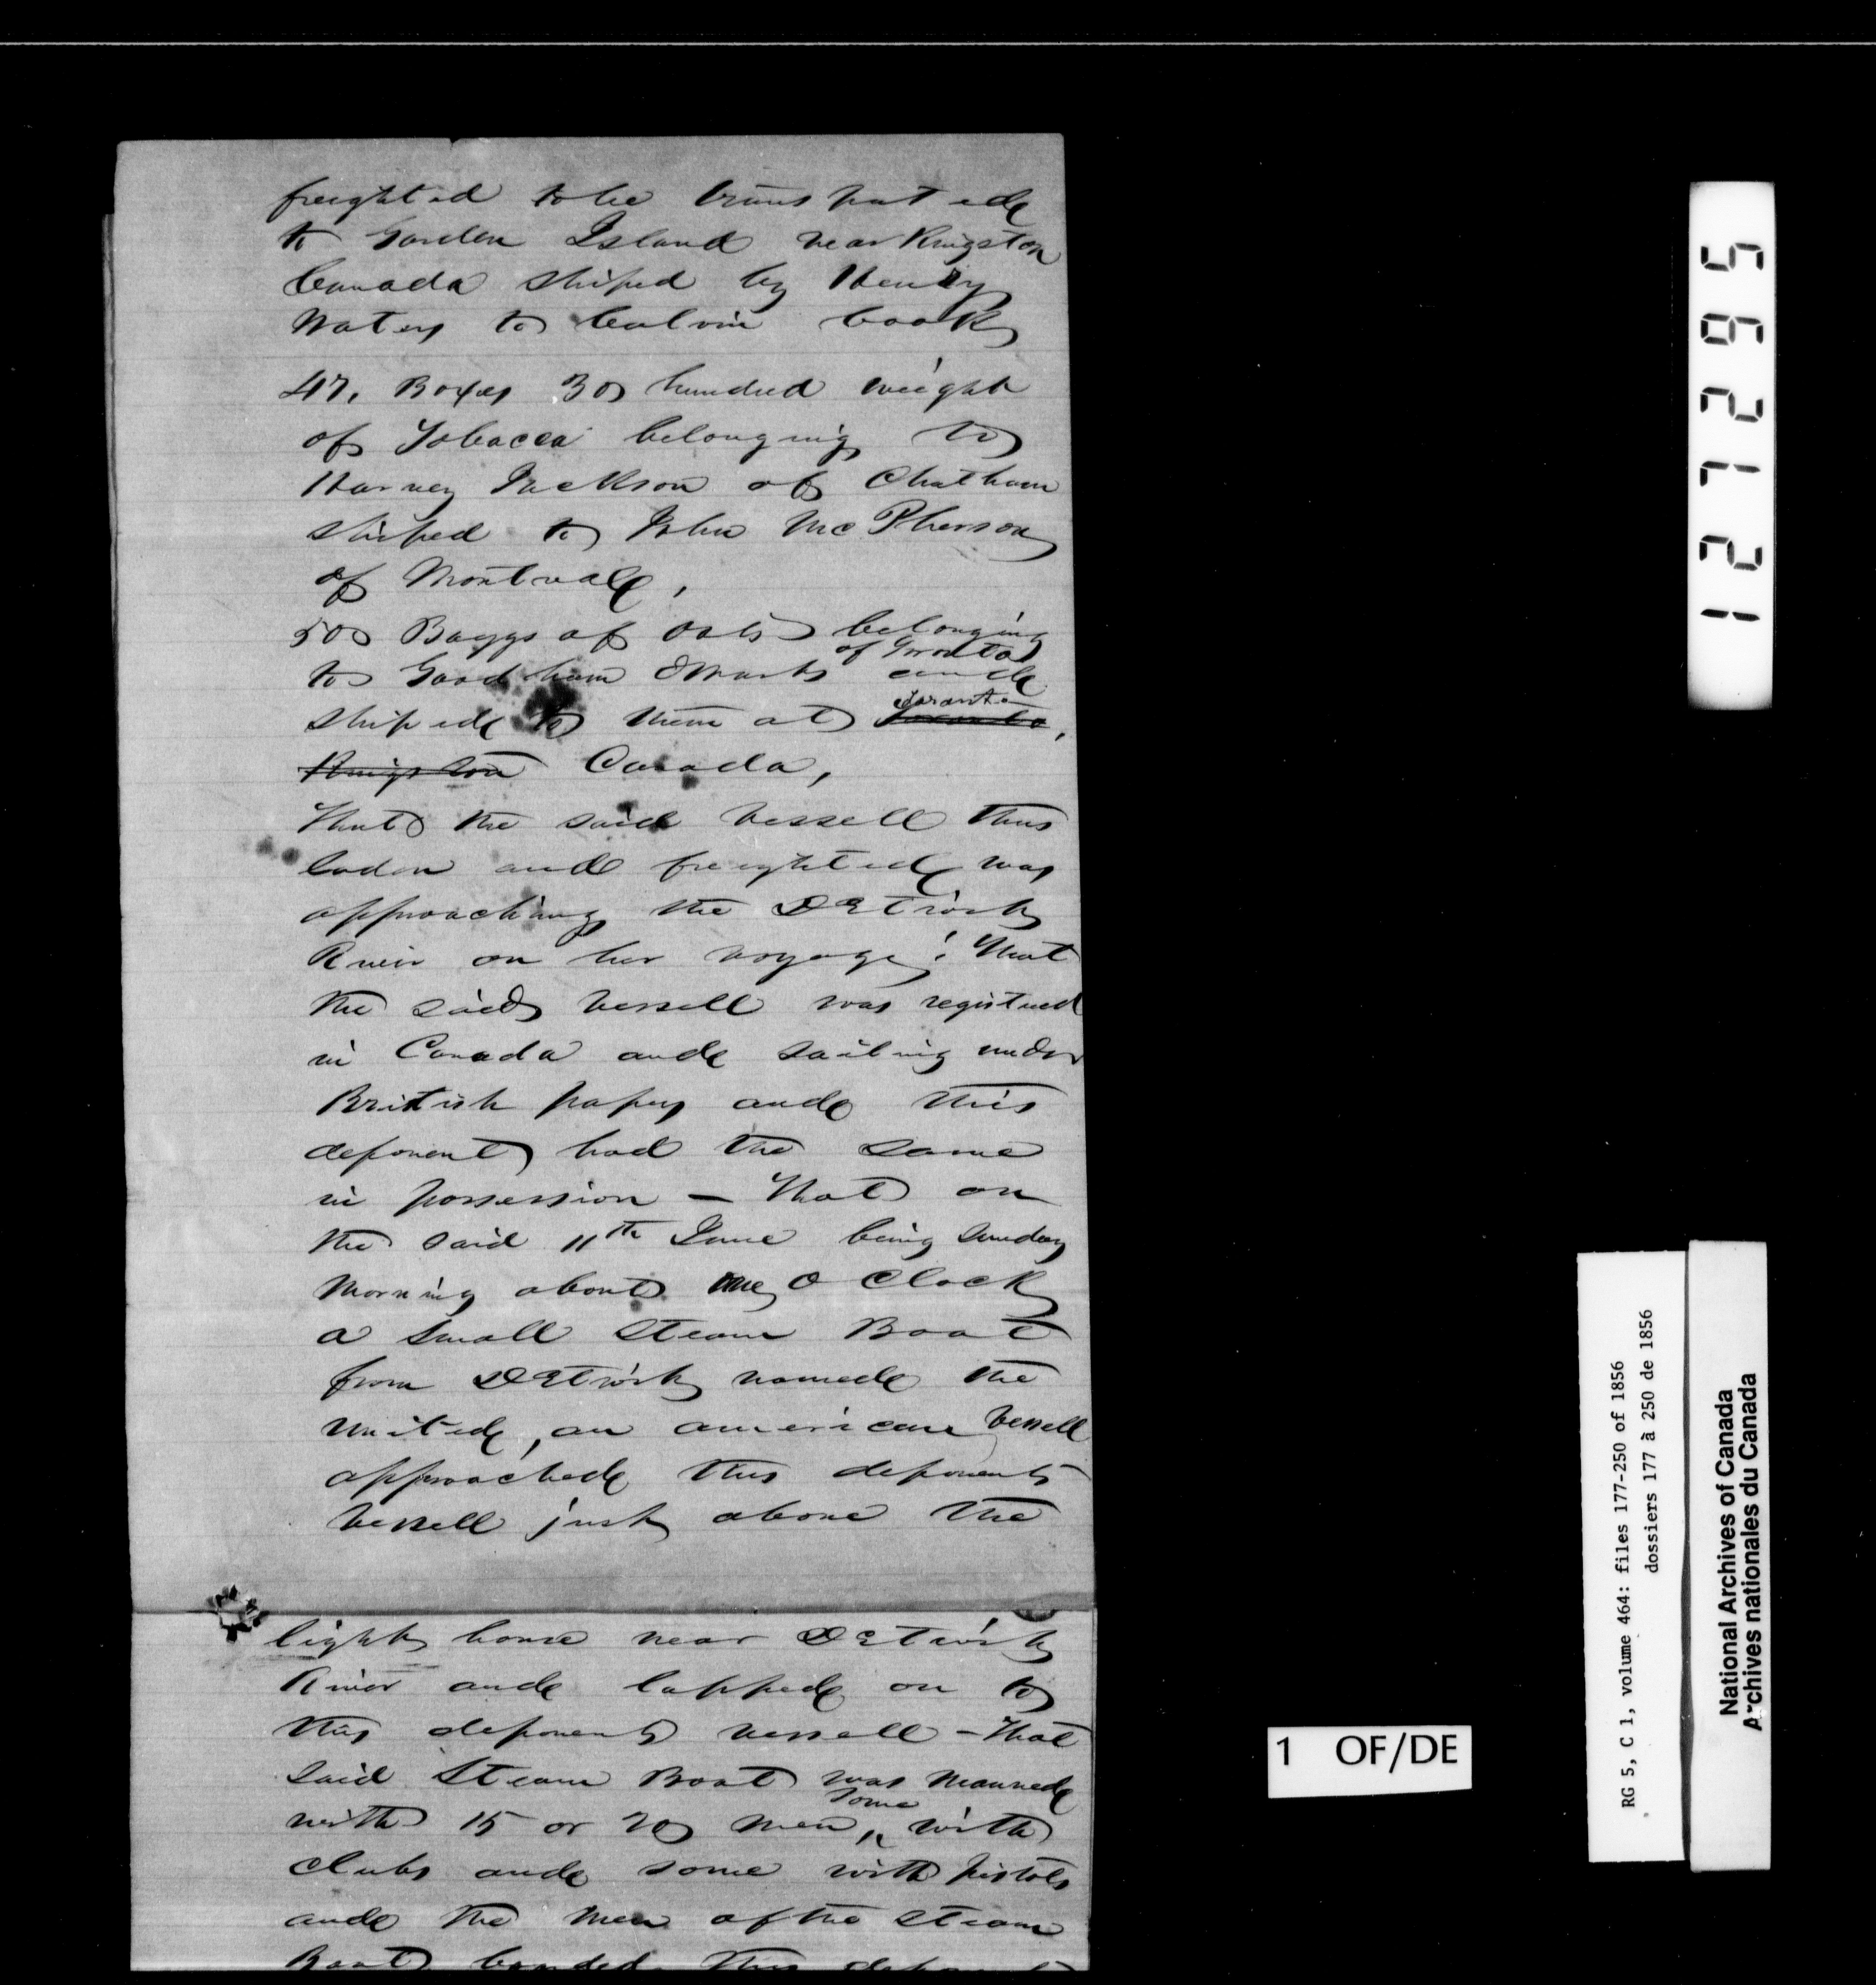 freighted to be transported
to Garden Island near Kingston
Canada shiped by Henry
Waters to Calvin Cook
47, Boxes 30 hundred weight
of Tobacco belonging to
Harvey Jackson of Chatham
shiped to John McPherson
of Montreall,
500 Baggs of Oats belonging
of Toronto
to Goodham & Warts and
Toronto
shiped to them at Toronto,
Kingston Canada,
That the said vessell thus
laden and freighted was
approaching the DEtroit
River on her voyage: That
the said vessell was registued
in Canada and sailing under
British papers and this
deponent had the same
in possession – That on
the said 11th June being Sunday
Morning about one O Clock
a small Steam Boat
from DEtroit named the
United, an american vessell
approached this deponents
vessell just above the
light house near DEtroit
River and lapped on to
this deponents vessell – That
said Steam Boat was manned
some
with 15 or 20 men, with
clubs and some with pistols
and the men of the Steam
Boat boarded this
1 OF/DE
127295
RG 5, C 1, volume 464: files 177-250 of 1856
dossiers 177 à 250 de 1856
National Archives of Canada
Archives nationales du Canada